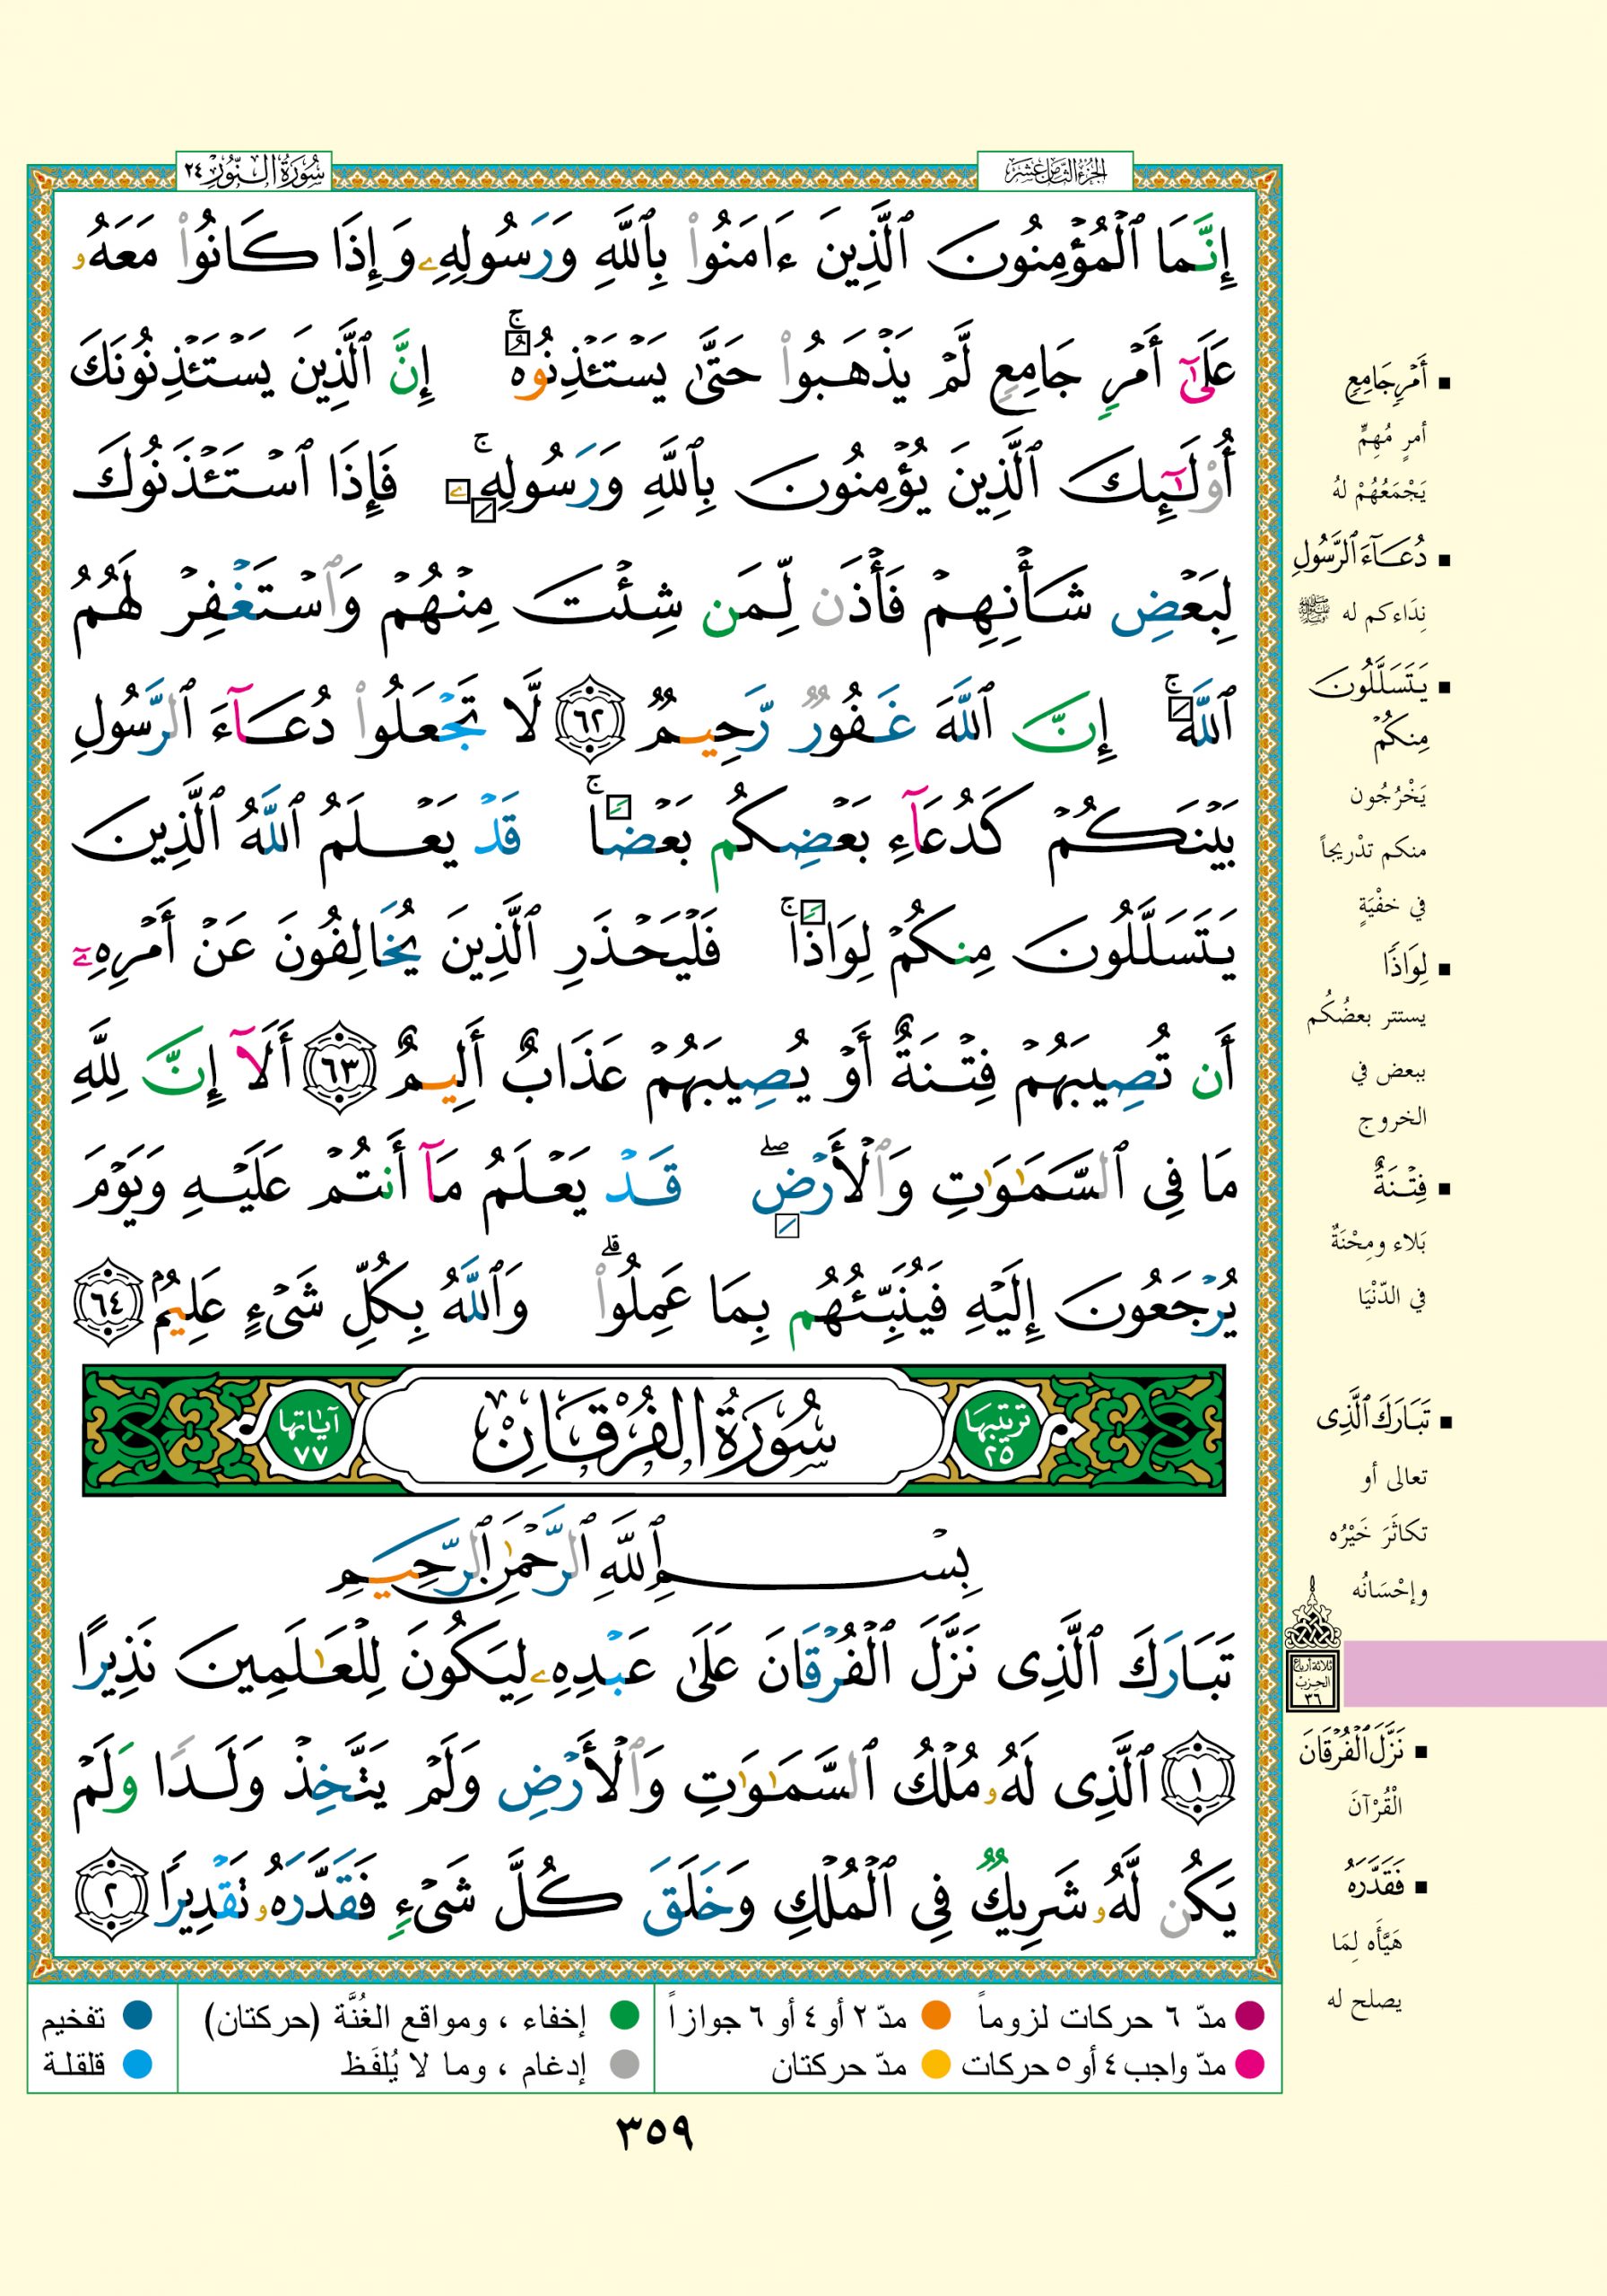 الجزء الثامن عشر
سورة النور ٢٤
إِنَّمَا ٱلْمُؤْمِنُونَ ٱلَّذِينَ ءَامَنُوا۟ بِٱللَّهِ وَرَسُولِهِۦ وَإِذَا كَانُوا۟ مَعَهُۥ
عَلَىٰٓ أَمْرٍ جَامِعٍ لَّمْ يَذْهَبُوا۟ حَتَّىٰ يَسْتَـْٔذِنُوهُ ۚ إِنَّ ٱلَّذِينَ يَسْتَـْٔذِنُونَكَ
أُو۟لَـٰٓئِكَ ٱلَّذِينَ يُؤْمِنُونَ بِٱللَّهِ وَرَسُولِهِۦ ۚ فَإِذَا ٱسْتَـْٔذَنُوكَ
لِبَعْضِ شَأْنِهِمْ فَأْذَن لِّمَن شِئْتَ مِنْهُمْ وَٱسْتَغْفِرْ لَهُمُ
ٱللَّهَ ۚ إِنَّ ٱللَّهَ غَفُورٌ رَّحِيمٌ ٦٢ لَّا تَجْعَلُوا۟ دُعَآءَ ٱلرَّسُولِ
بَيْنَكُمْ كَدُعَآءِ بَعْضِكُم بَعْضًا ۚ قَدْ يَعْلَمُ ٱللَّهُ ٱلَّذِينَ
يَتَسَلَّلُونَ مِنكُمْ لِوَاذًا ۚ فَلْيَحْذَرِ ٱلَّذِينَ يُخَالِفُونَ عَنْ أَمْرِهِۦٓ
أَن تُصِيبَهُمْ فِتْنَةٌ أَوْ يُصِيبَهُمْ عَذَابٌ أَلِيمٌ ٦٣ أَلَآ إِنَّ لِلَّهِ
مَا فِى ٱلسَّمَـٰوَٰتِ وَٱلْأَرْضِ ۖ قَدْ يَعْلَمُ مَآ أَنتُمْ عَلَيْهِ وَيَوْمَ
يُرْجَعُونَ إِلَيْهِ فَيُنَبِّئُهُم بِمَا عَمِلُوا۟ ۗ وَٱللَّهُ بِكُلِّ شَىْءٍ عَلِيمٌۢ ٦٤
ترتيبها ٢٥
سُورَةُ الفُرْقَانِ
آياتها ٧٧
بِسْمِ ٱللَّهِ ٱلرَّحْمَـٰنِ ٱلرَّحِيمِ
تَبَارَكَ ٱلَّذِى نَزَّلَ ٱلْفُرْقَانَ عَلَىٰ عَبْدِهِۦ لِيَكُونَ لِلْعَـٰلَمِينَ نَذِيرًا
١ ٱلَّذِى لَهُۥ مُلْكُ ٱلسَّمَـٰوَٰتِ وَٱلْأَرْضِ وَلَمْ يَتَّخِذْ وَلَدًا وَلَمْ
يَكُن لَّهُۥ شَرِيكٌ فِى ٱلْمُلْكِ وَخَلَقَ كُلَّ شَىْءٍ فَقَدَّرَهُۥ تَقْدِيرًا ٢
أَمْرٍ جَامِعٍ
أمرٍ مُهِمٍّ
يَجْمَعُهُمْ لهُ
دُعَآءَ ٱلرَّسُولِ
نِدَاءكم له ﷺ
يَتَسَلَّلُونَ
مِنكُمْ
يَخْرُجُون
منكم تدْريجاً
في خفْيَةٍ
لِوَاذًا
يستتر بعضُكُم
ببعض في
الخروج
فِتْنَةٌ
بَلاء ومِحْنَةٌ
في الدّنْيَا
تَبَارَكَ ٱلَّذِى
تعالى أو
تكاثَرَ خَيْرُه
وإحْسَانُه
ثلاثة أرباع
الحزب
٣٦
نَزَّلَ ٱلْفُرْقَانَ
الْقُرْآنَ
فَقَدَّرَهُ
هَيَّأَه لِمَا
يصلح له
مدّ ٦ حركات لزوماً مدّ ٢ أو ٤ أو ٦ جوازاً إخفاء ، ومواقع الغُنَّة (حركتان) تفخيم
مدّ واجب ٤ أو ٥ حركات مدّ حركتان إدغام ، وما لا يُلفَظ قلقلة
٣٥٩